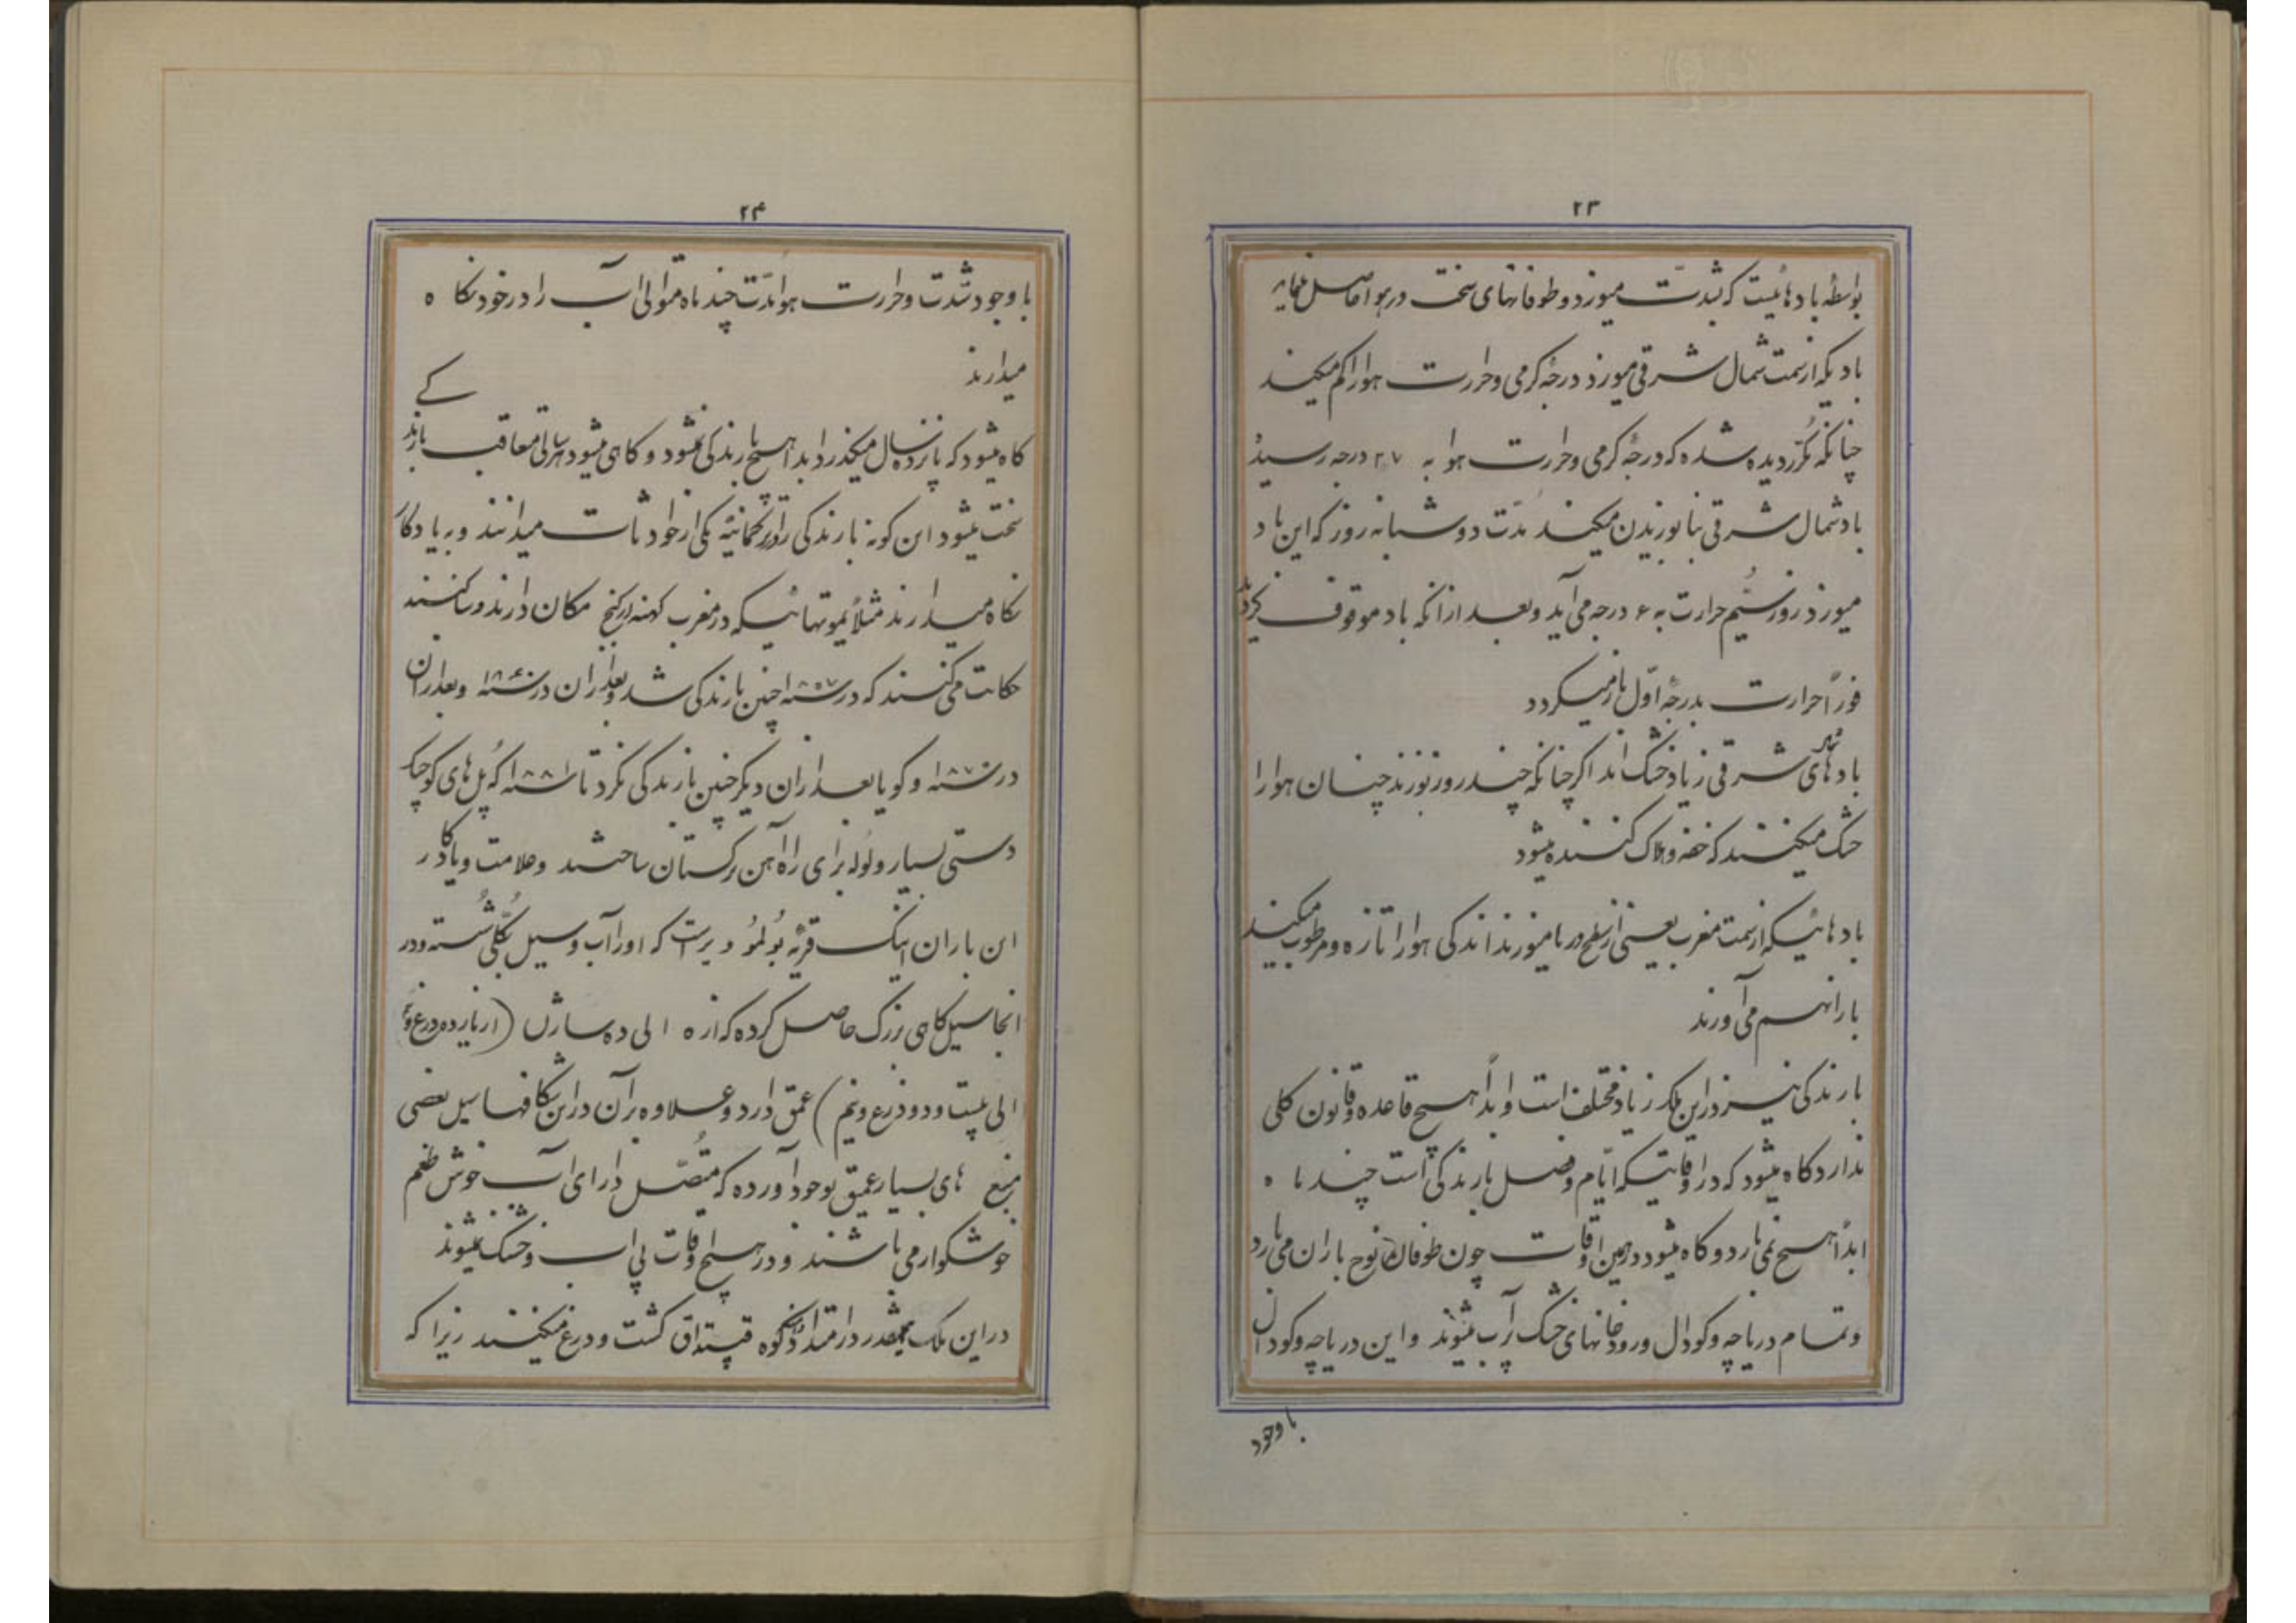 ۲۳
بواسطهٔ بادهائیست که بشدّت میوزد و طوفانهای سخت در هوا حاصل مینماید
بادیکه از سمت شمال شرقی میوزد درجهٔ کرمی و حرارت هوا را کم میکند
چنانکه مکرّر دیده شده که درجهٔ کرمی و حرارت هوا به ۲۷ درجه رسیدهٔ
باد شمال شرقی بنا بوزیدن میکند مدّت دو شبانه روز که این باد
میوزد روز سیُّم حرارت به ۶ درجه می آید و بعد از آنکه باد موقوف کردید
فوراً حرارت بدرجهٔ اوّل باز میکردد
بادهای شرقی زیاد خشک اند اکر چنانکه چند روز بوزند چنان هوا را
خشک میکنند که خفه و هلاک کننده میشود
بادهائیکه از سمت مغرب یعنی از سطح دریا میوزند اندکی هوا را تازه و مرطوب میکنند
باران هم می آورند
بارندکی نیز در این ملک زیاد مختلف است و ابداً هیچ قاعده و قانون کلی
ندارد کاه میشود که در اوقاتیکه ایّام و فصل بارندکی است چند ماه
ابداً هیچ نمی بارد و کاه میشود در همین اوقات چون طوفان نوح باران می بارد
و تمام دریاچه و کودال و رودخانهای خشک پر آب میشوند و این دریاچه و کودال
با وجود
۲۴
با وجود شدّت و حرارت هوا مدّت چند ماه متوالی آب را در خود نکاه
میدارند
کاه میشود که پانزده سال میکذرد ابدا هیچ بارندکی نمیشود و کاهی میشود هر سالی متعاقب بارندکی
سخت میشود این کونه بارندکی را ترکمانیّه یکی از حوادثات میدانند و به یادکار
نکاه میدارند مثلاً یموتهائیکه در مغرب کهنه اورکنج مکان دارند و ساکنند
حکایت می کنند که در سنه ۱۸۵۷ چنین بارندکی شد و بعد از آن در سنه ۱۸۶۰ و بعد از آن
در سنه ۱۸۷۰ و کویا بعد از آن دیکر چنین بارندکی نکرد تا سنه ۱۸۸۱ که پل های کوچک
دستی بسیار و لوله برای راه آهن ترکستان ساختند و علامت و یادکار
این باران اینک قریهٔ بُولمُو دیر است که او را آب و سیل بکلّی شُسته و در
انجا سیل کاهی بزرک حاصل کرده که از ۵ الی ده سازن (از یازده ذرع و نیم
الی بیست و دو ذرع و نیم) عمق دارد و علاوه بر آن در این شکافها سیل بعضی
منبع های بسیار عمیق بوجود آورده که متّصل دارای آب خوش طعم
خوشکوار می باشند و در هیچ اوقات بی آب و خشک نمیشوند
در این ملک همینقدر در امتداد کوه قپتداق کشت و درع میکنند زیرا که